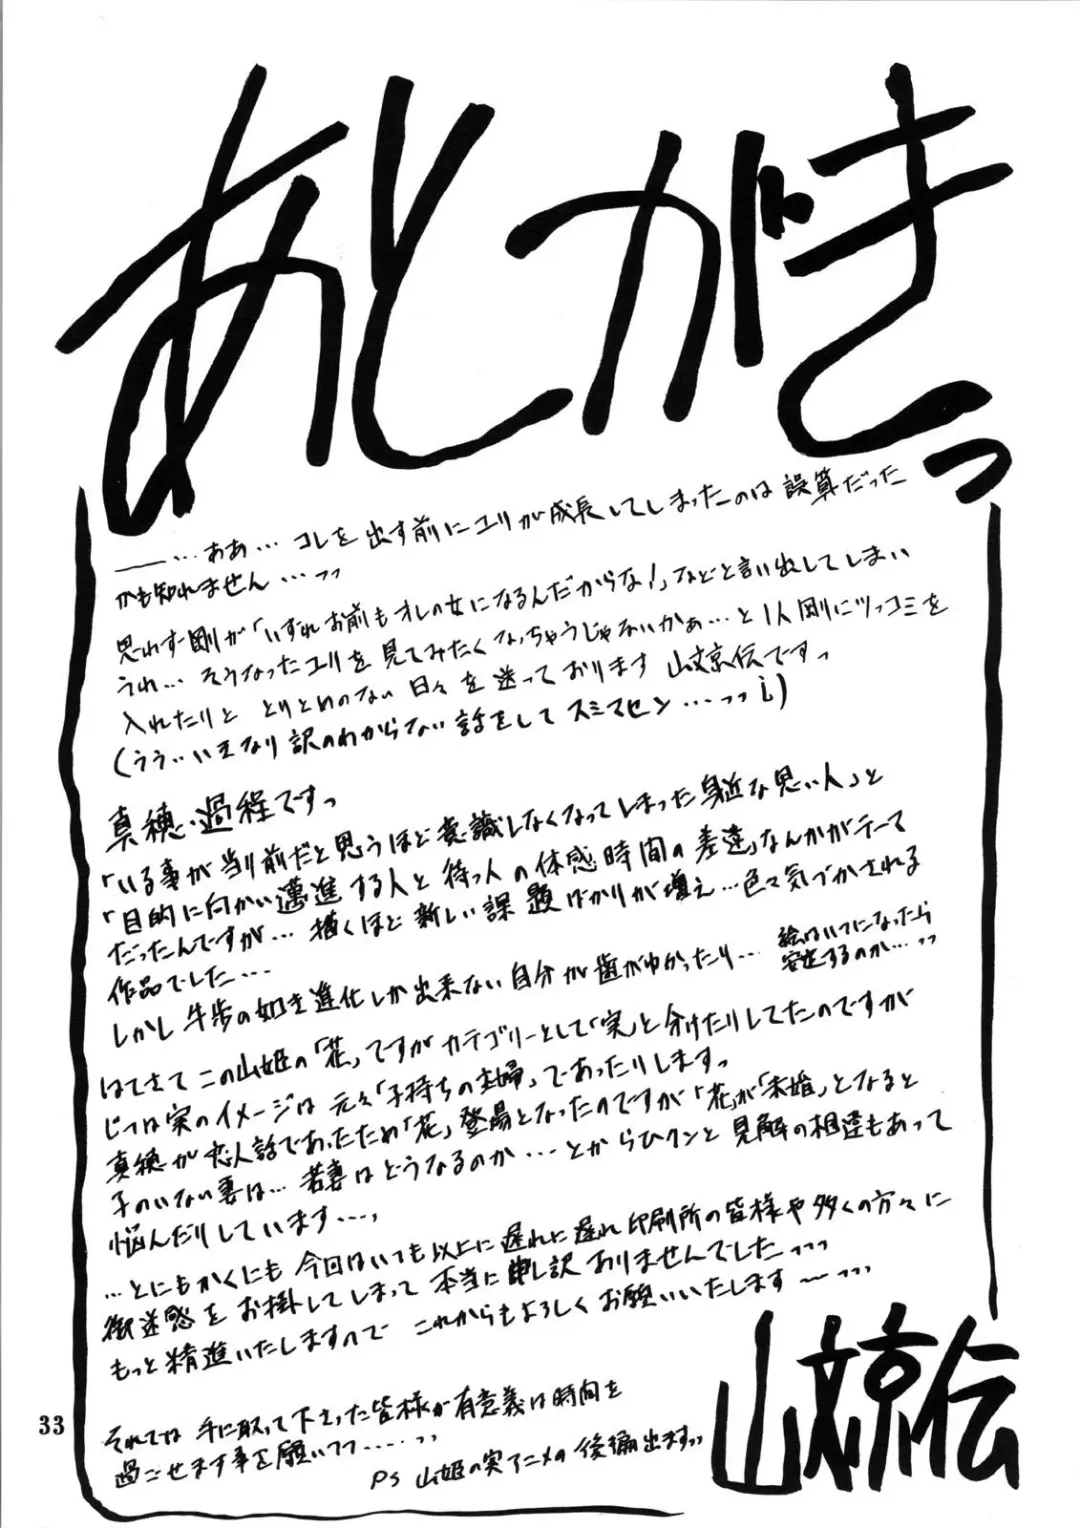 あとがきっ
――…ああ… コレを出す前にユリが成長してしまったのは誤算だった
かも知れません…っっ
思わず剛が「いずれお前もオレの女になるんだからな!」などと言い出してしまい
うれ… そうなったユリを見てみたくなっちゃうじゃないかぁ…と1人剛にツッコミを
入れたりと とりとめのない日々を送っております 山文京伝ですっ
(うう‥いきなり訳のわからない話をしてスミマセン…っっ;)
真穂・過程ですっ
「いる事が当り前だと思うほど意識しなくなってしまった身近な思い人」と
「目的に向かい邁進する人と待つ人の体感時間の差違」なんかがテーマ
だったんですが… 描くほど新しい課題ばかりが増え…色々気づかされる
作品でした…
しかし牛歩の如き進化しか出来ない自分が歯がゆかったり…
絵はいつになったら
安定するのか…っっ
はてさてこの山姫の「花」ですがカテゴリーとして「実」と分けたりしてたのですが
じつは実のイメージは元々「子持ちの主婦」であったりしますっ
真穂が恋人話であったため「花」登場となったのですが「花」が「未婚」となると
子のいない妻は… 若妻はどうなるのか…とからひクンと見解の相違もあって
悩んだりしています…、
…とにもかくにも今回はいつも以上に遅れに遅れ印刷所の皆様や多くの方々に
御迷惑をお掛してしまって本当に申し訳ありませんでした…っっ
もっと精進いたしますので これからもよろしくお願いいたします～…っっ
それでは 手に取って下さった皆様が有意義な時間を
過ごせます事を願いつつ……っっ
PS 山姫の実アニメの後編出ますっっ
山文京伝
33